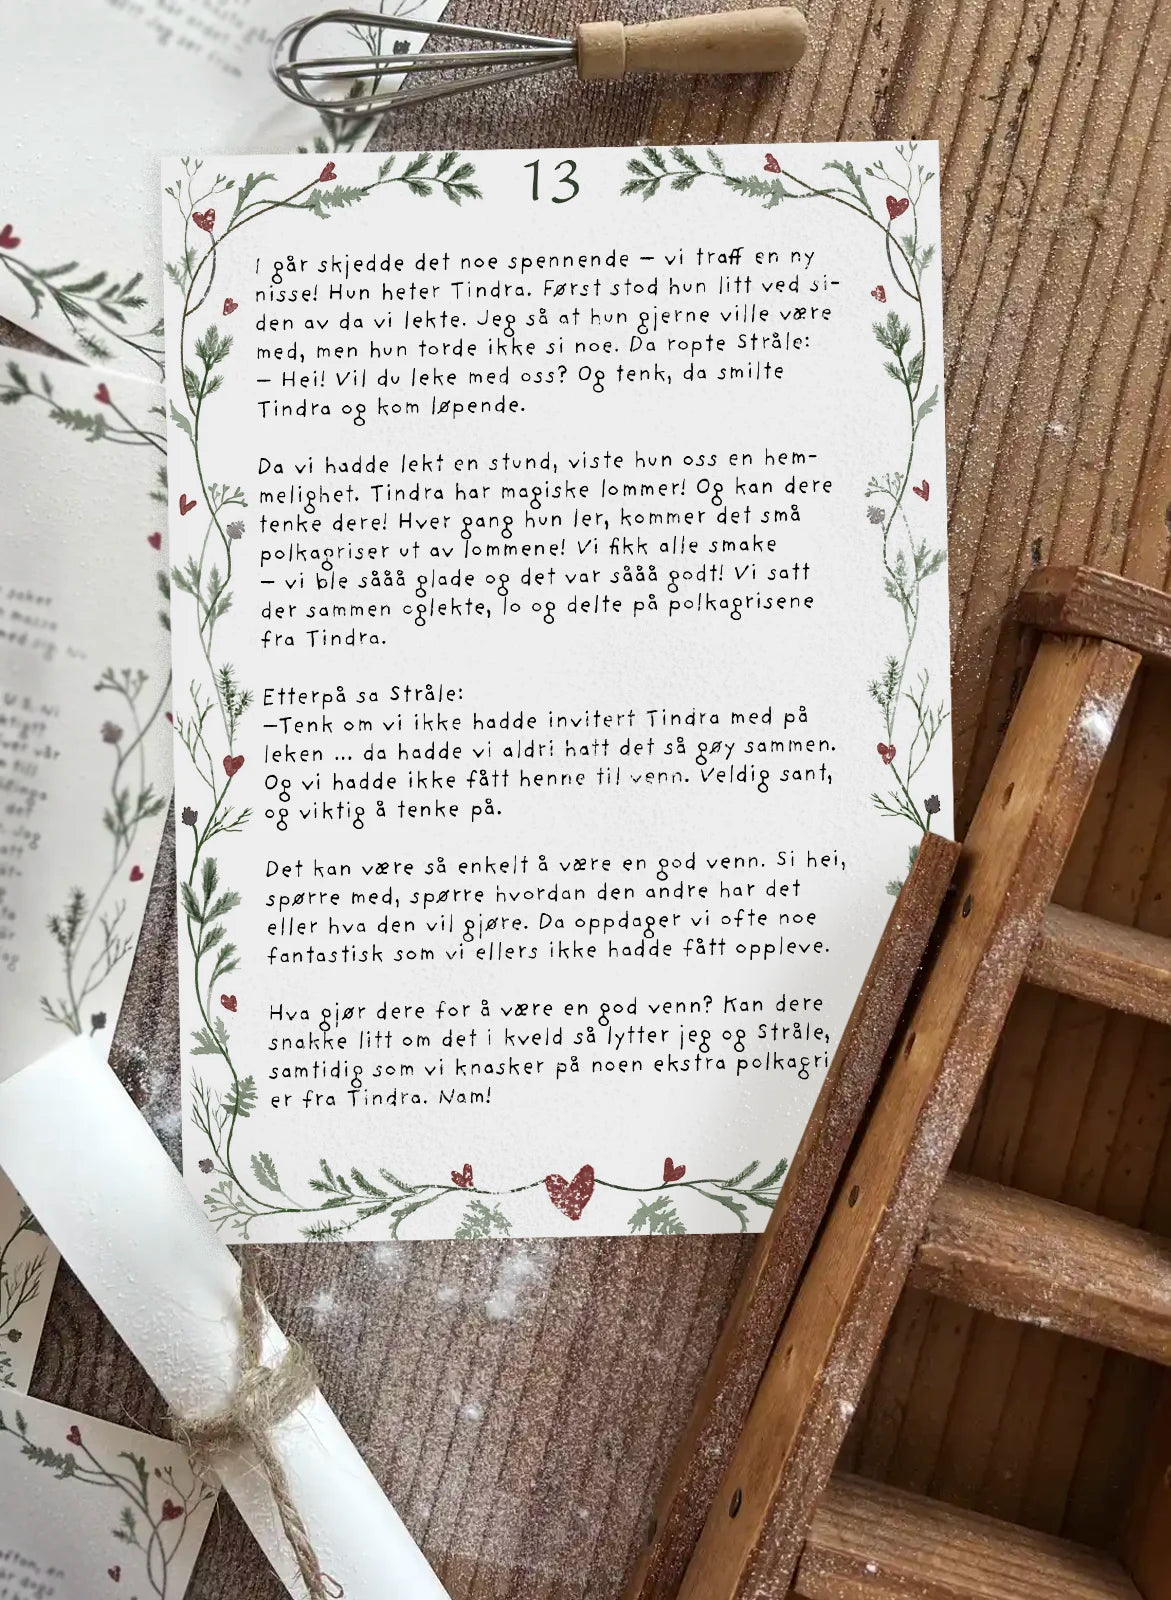 13
I går skjedde det noe spennende – vi traff en ny
nisse! Hun heter Tindra. Først stod hun litt ved si-
den av da vi lekte. Jeg så at hun gjerne ville være
med, men hun torde ikke si noe. Da ropte Stråle:
– Hei! Vil du leke med oss? Og tenk, da smilte
Tindra og kom løpende.
Da vi hadde lekt en stund, viste hun oss en hem-
melighet. Tindra har magiske lommer! Og kan dere
tenke dere! Hver gang hun ler, kommer det små
polkagriser ut av lommene! Vi fikk alle smake
– vi ble sååå glade og det var sååå godt! Vi satt
der sammen oglekte, lo og delte på polkagrisene
fra Tindra.
Etterpå sa Stråle:
–Tenk om vi ikke hadde invitert Tindra med på
leken ... da hadde vi aldri hatt det så gøy sammen.
Og vi hadde ikke fått henne til venn. Veldig sant,
og viktig å tenke på.
Det kan være så enkelt å være en god venn. Si hei,
spørre med, spørre hvordan den andre har det
eller hva den vil gjøre. Da oppdager vi ofte noe
fantastisk som vi ellers ikke hadde fått oppleve.
Hva gjør dere for å være en god venn? Kan dere
snakke litt om det i kveld så lytter jeg og Stråle,
samtidig som vi knasker på noen ekstra polkagri
er fra Tindra. Nam!